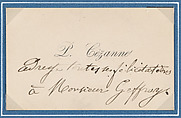 P. Cézanne
adresse toutes ses félicitations
à Monsieur Geffroy